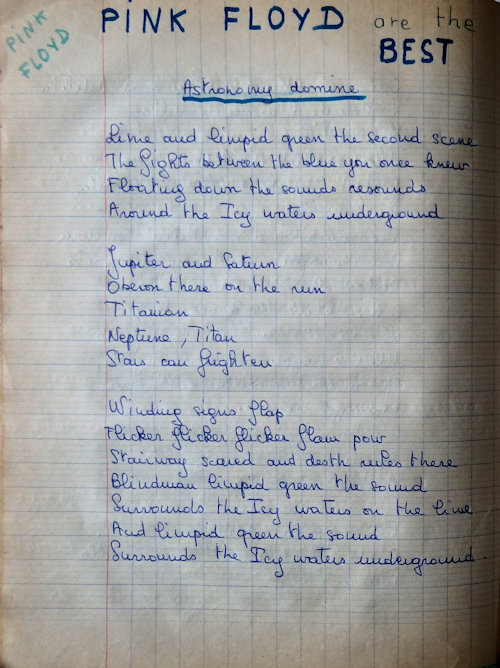 PINK FLOYD
PINK FLOYD are the BEST
Astronomy domine
Lime and limpid green the second scene
The fights between the blue you once knew
Floating down the sounds resounds
Around the Icy waters underground
Jupiter and Saturn
Oberon there on the run
Titanian
Neptune, Titan
Stars can frighten
Winding signs flap
Flicker flicker flicker flam pow
Stairway scared and death rules there
Blindman limpid green the sound
Surrounds the Icy waters on the lime
And limpid green the sound
Surrounds the Icy waters underground